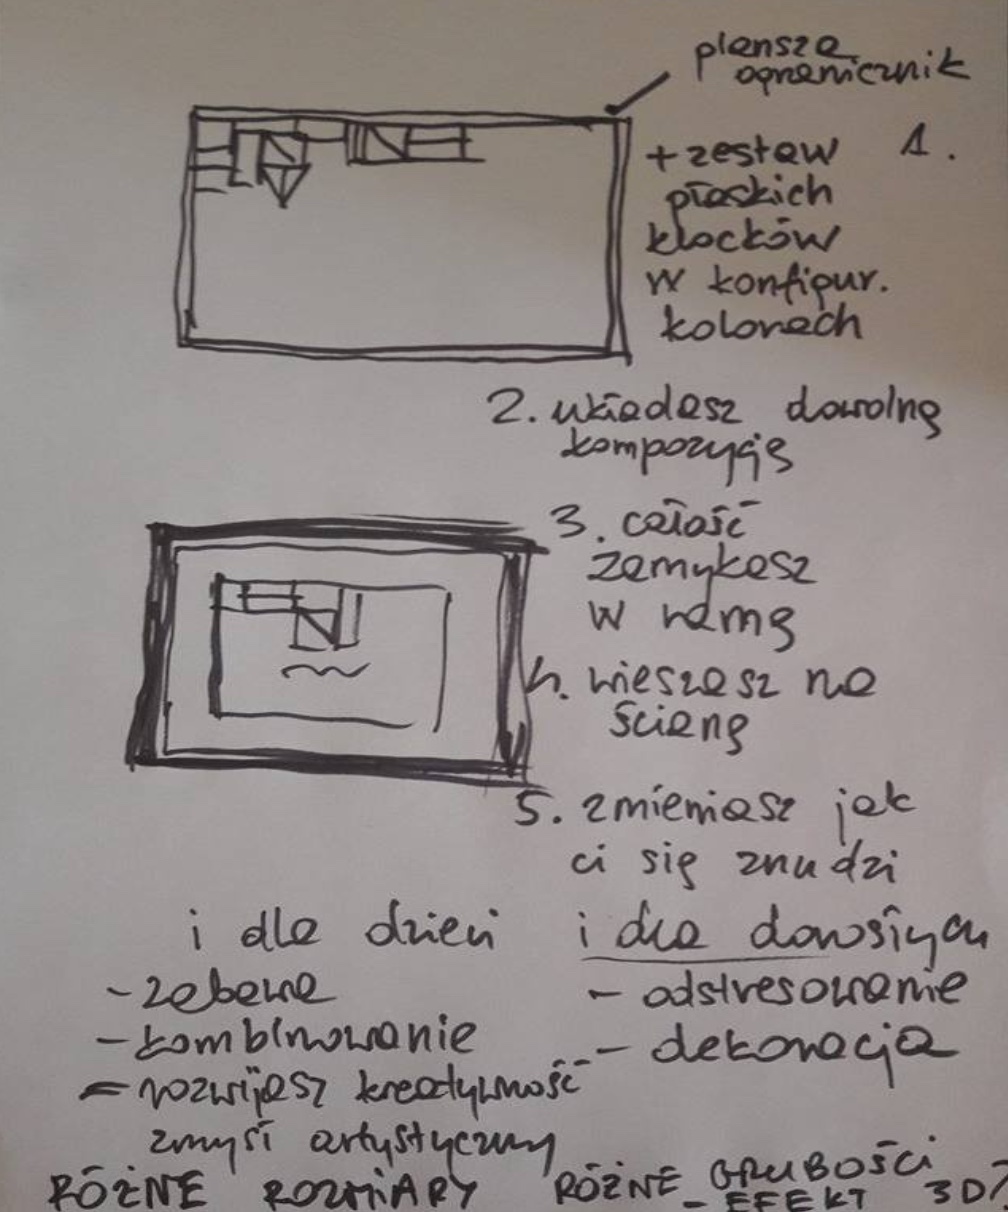 plansza
ogranicznik
1.
+ zestaw
płaskich
klocków
w konfigur.
kolorach
2. układasz dowolną
kompozycję
3. całość
zamykasz
w ramę
4. wieszasz na
ścianę
5. zmieniasz jak
ci się znudzi
i dla dzieci
- zabawa
- kombinowanie
- rozwijasz kreatywność
zmysł artystyczny
i dla dorosłych
- odstresowanie
- dekoracja
RÓŻNE ROZMIARY
RÓŻNE GRUBOŚCI
- EFEKT 3D